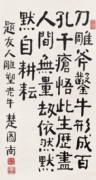 刀雕斧鑿牛形成百
孔千瘡悟此生歷盡
人間無量劫依然默
默自耕耘
題友人雕塑老牛 楚圖南